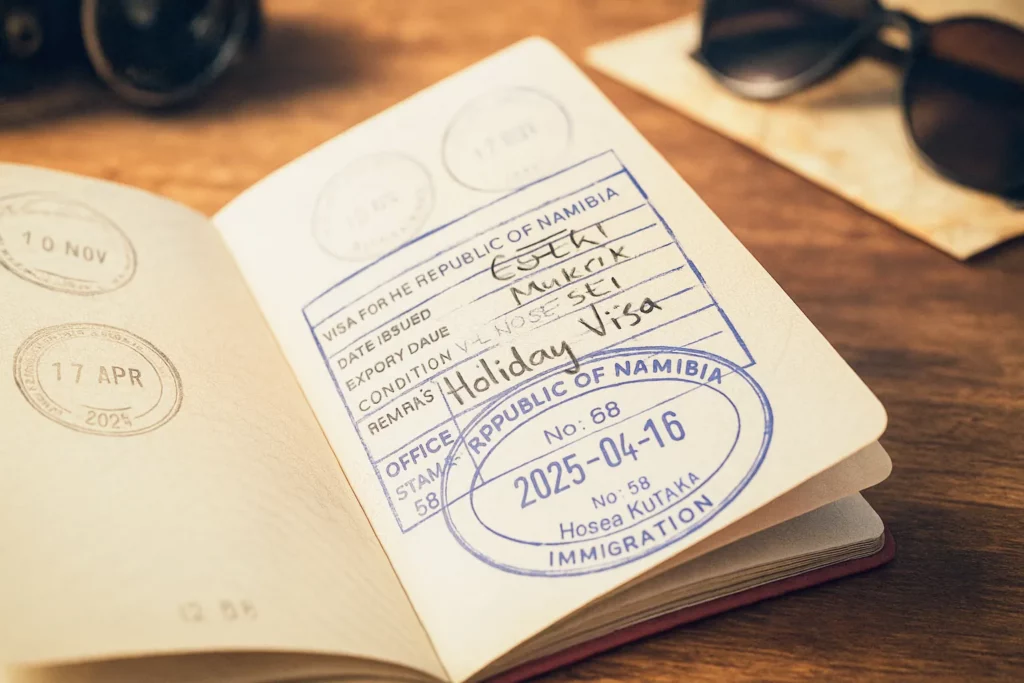 10 NOV
17 APR
VISA FOR HE REPUBLIC OF NAMIBIA
DATE IBSUED
EXPORY DAUE Mukrik
CONDITION NOSE SEI
REMRA'S Holiday Visa
OFFICE
STAMA
58
RPPUBLIC OF NAMIBIA
No: 68
2025-04-16
No: 58
Hosea KUTAKA
IMMIGRATION